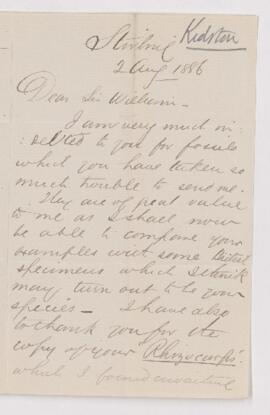 Kidston
Stirling
2 Aug 1886
Dear Sir William –
I am very much in:
:debted to you for fossils
which you have taken so
much trouble to send me.
They are of great value
to me as I shall now
be able to compare your
examples with some British
specimens which I think
may turn out to be your
species – I have also
to thank you for the
copy of your "Rhizocarps"
which I found